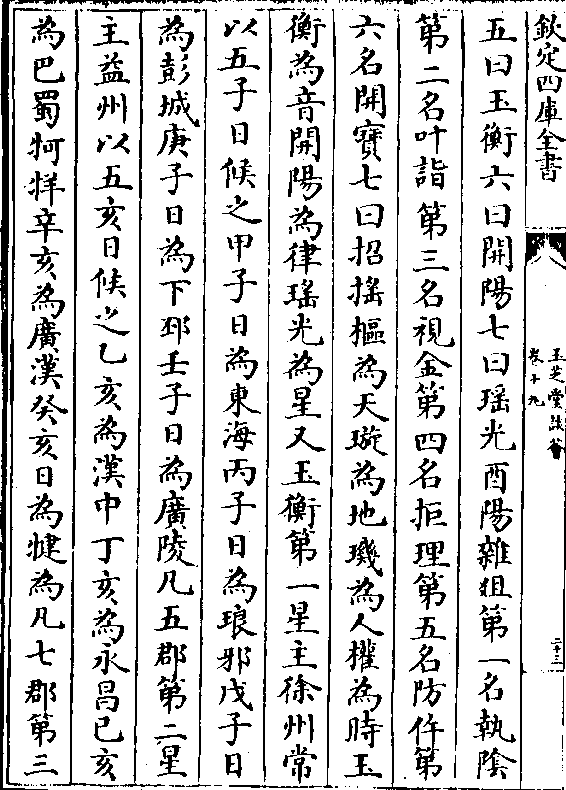 欽定四庫全書
玉芝堂談薈
卷十九
二十三
五曰玉衡六曰開陽七曰瑶光酉陽雜狙第一名執陰
第二名叶詣第三名視金第四名拒理第五名防仵第
六名開寳七曰招揺樞為天璇為地璣為人權為時玉
衡為音開陽為律瑶光為星又玉衡第一星主徐州常
以五子日候之甲子日為東海丙子日為琅邪戊子日
為彭城庚子日為下邳壬子日為廣陵凡五郡第二星
主益州以五亥日候之乙亥為漢中丁亥為永昌已亥
為巴蜀牁牂辛亥為廣漢癸亥日為犍為凡七郡第三